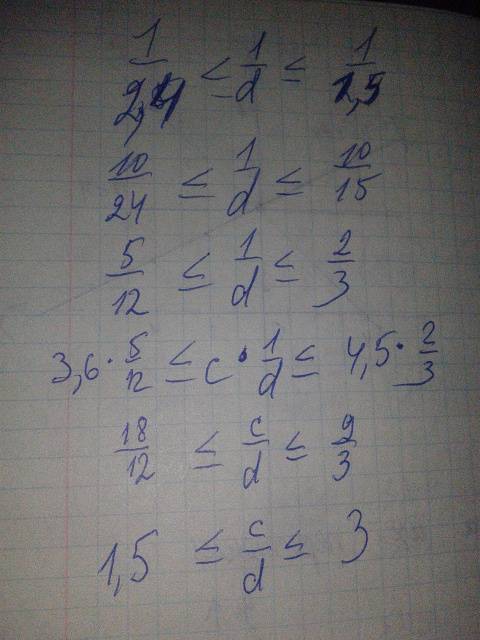 1/2,4 ≤ 1/d ≤ 1/1,5
10/24 ≤ 1/d ≤ 10/15
5/12 ≤ 1/d ≤ 2/3
3,6 · 5/12 ≤ c · 1/d ≤ 4,5 · 2/3
18/12 ≤ c/d ≤ 9/3
1,5 ≤ c/d ≤ 3